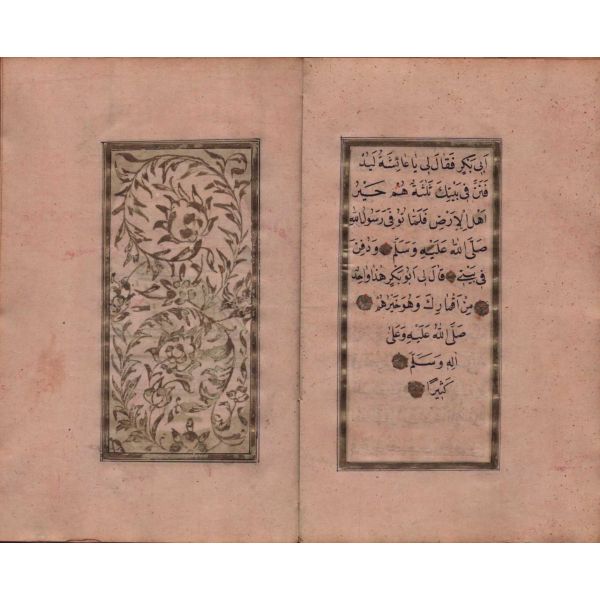 اَبِى بَكْرٍ فَقَالَ لِى يَا عَائِشَةُ لَيُدْ
فَنَنَّ فِى بَيْتِكِ ثَلٰثَةٌ هُمْ خَيْرُ
اَهْلِ الْاَرْضِ فَلَمَّا تُوُفِّىَ رَسُولُ اللّٰهِ
صَلَّى اللّٰهُ عَلَيْهِ وَسَلَّمَ وَدُفِنَ
فِى بَيْتِى قَالَ لِى اَبُو بَكْرٍ هٰذَا وَاحِدٌ
مِنْ اَقْمَارِكِ وَهُوَ خَيْرُهُمْ
صَلَّى اللّٰهُ عَلَيْهِ وَعَلٰى
اٰلِهِ وَسَلَّمَ
كَثِيرًا